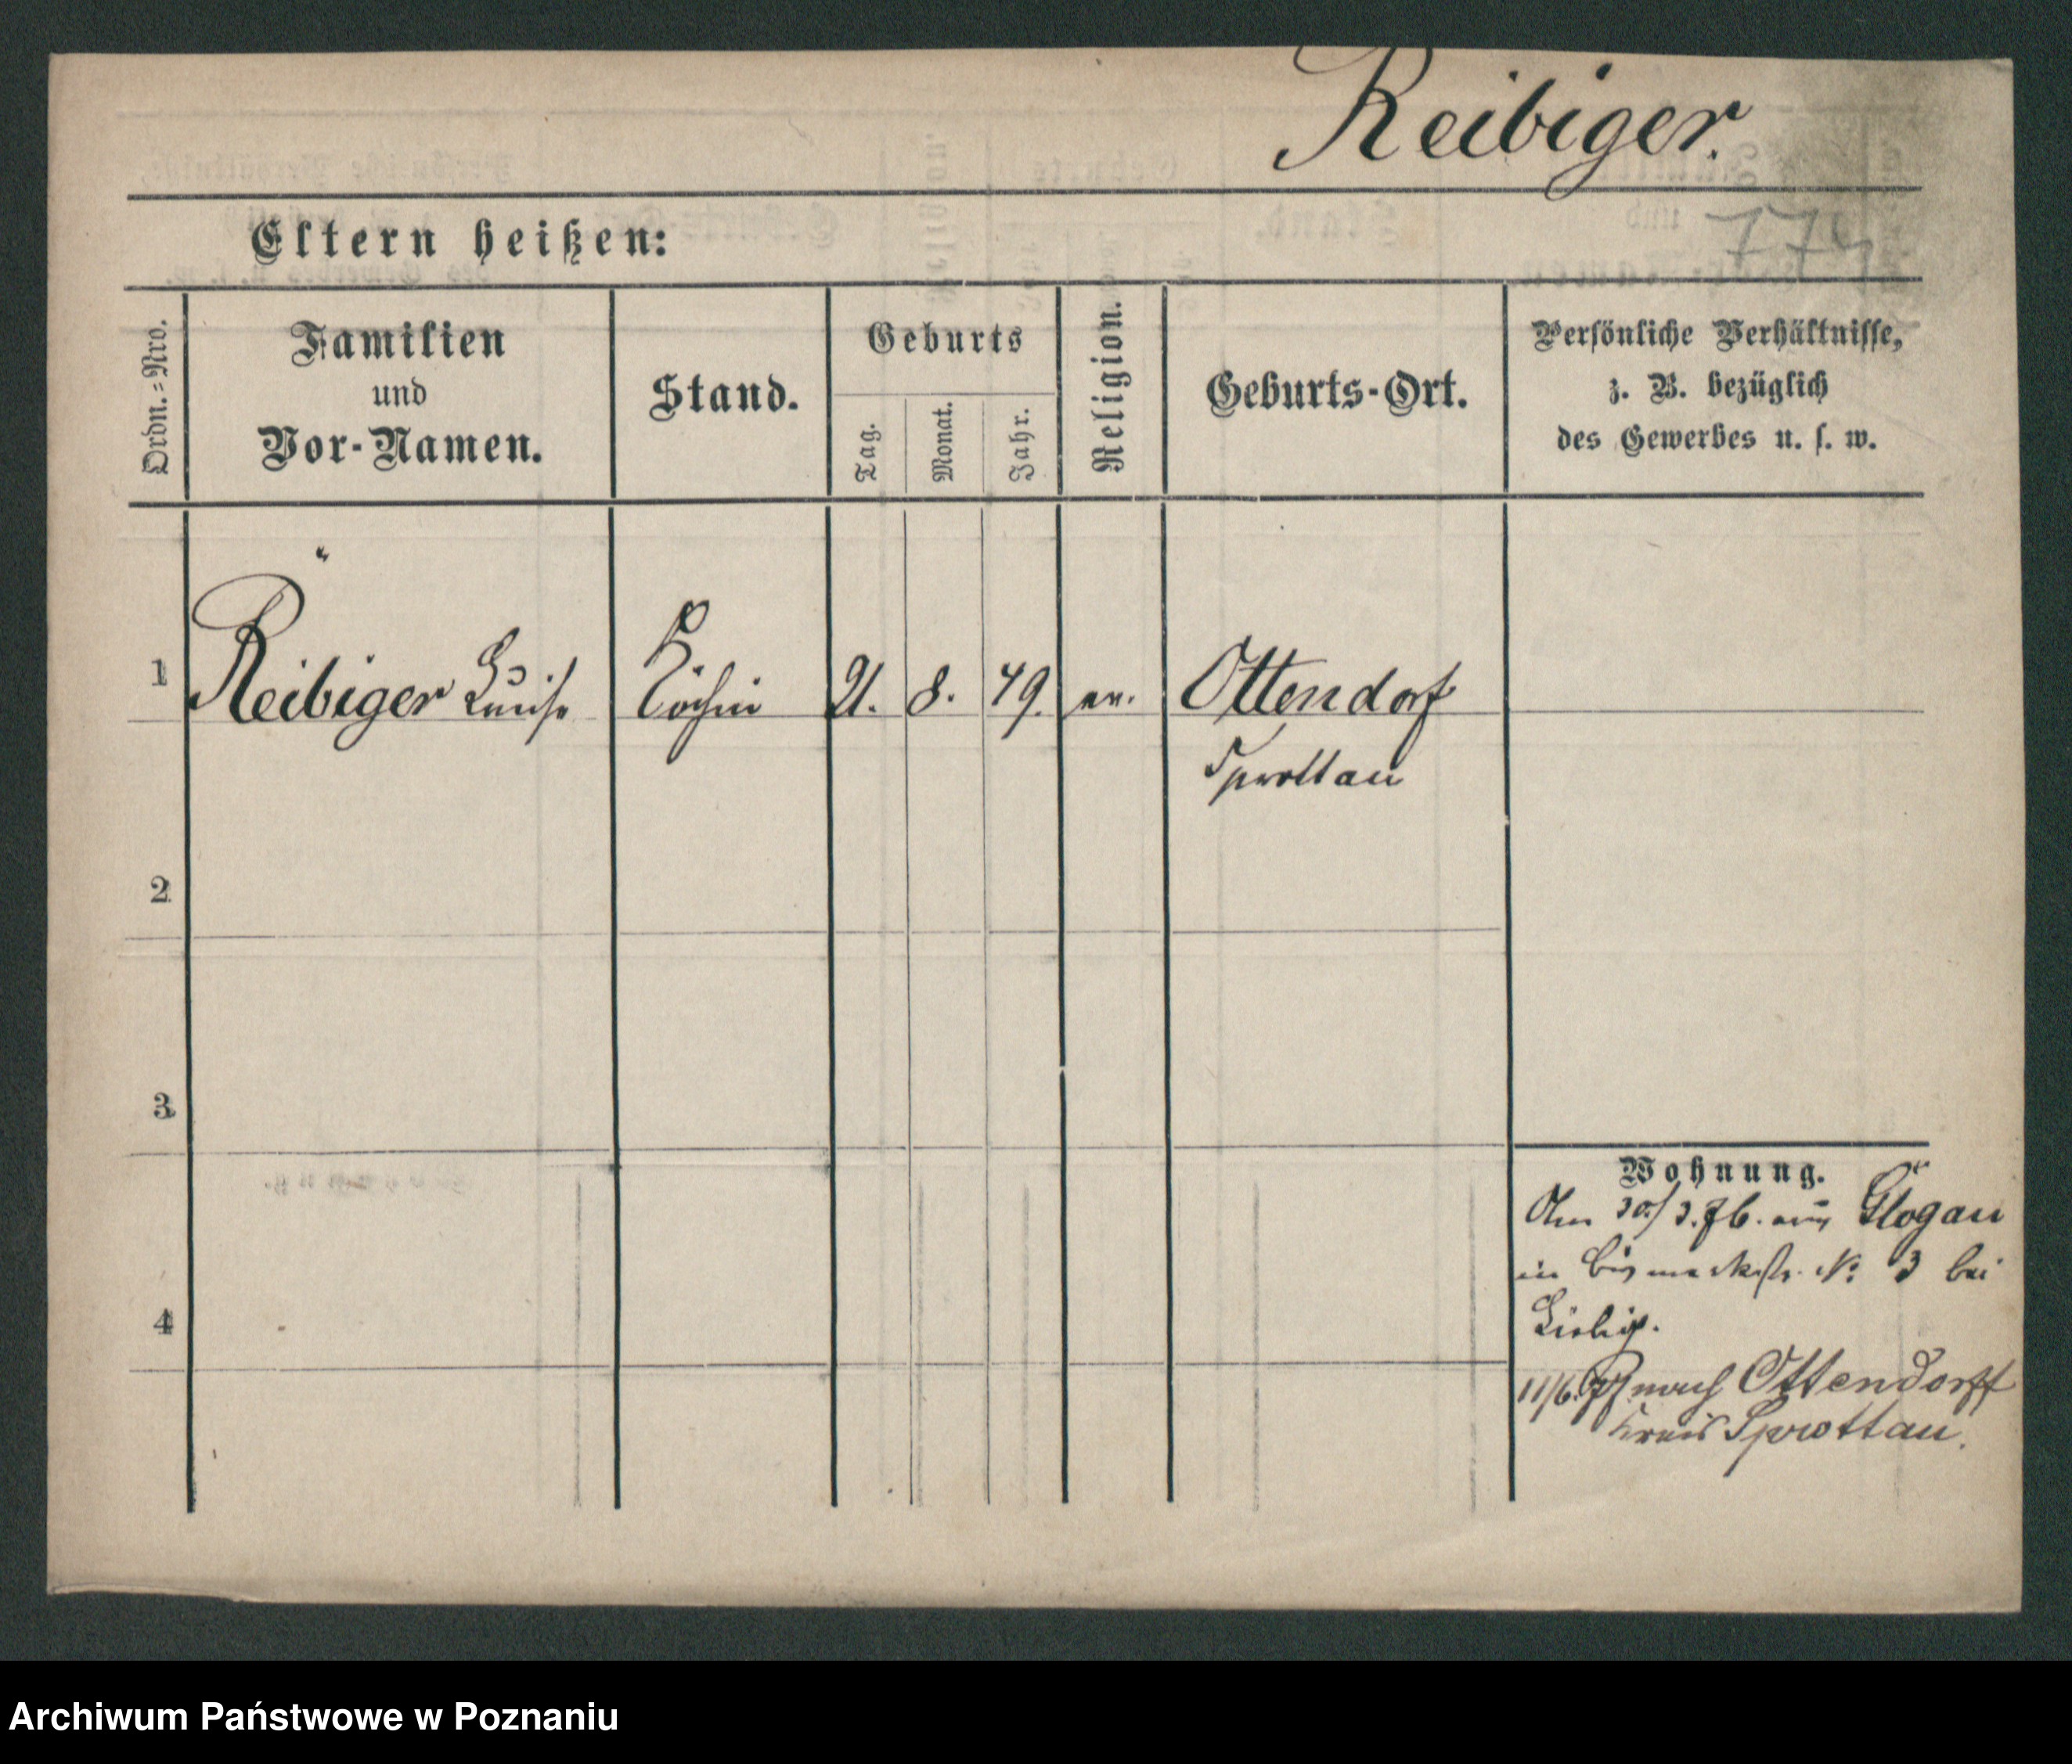 Reibiger.
Eltern heißen:
Ordn.=Nro.
Familien
und
Vor-Namen.
Stand.
Geburts
Tag.
Monat.
Jahr.
Religion.
Geburts-Ort.
Persönliche Verhältnisse,
z. B. bezüglich
des Gewerbes u. s. w.
1 Reibiger Luise Köchin 21. 8. 49. ev. Ottendorf
Sprottau
2
3
Wohnung.
Am 30/3. 76. aus Glogau
in Bismarckstr. No 3 bei
Liebig.
4
11/6. nach Ottendorff
Kreis Sprottau.
Archiwum Państwowe w Poznaniu